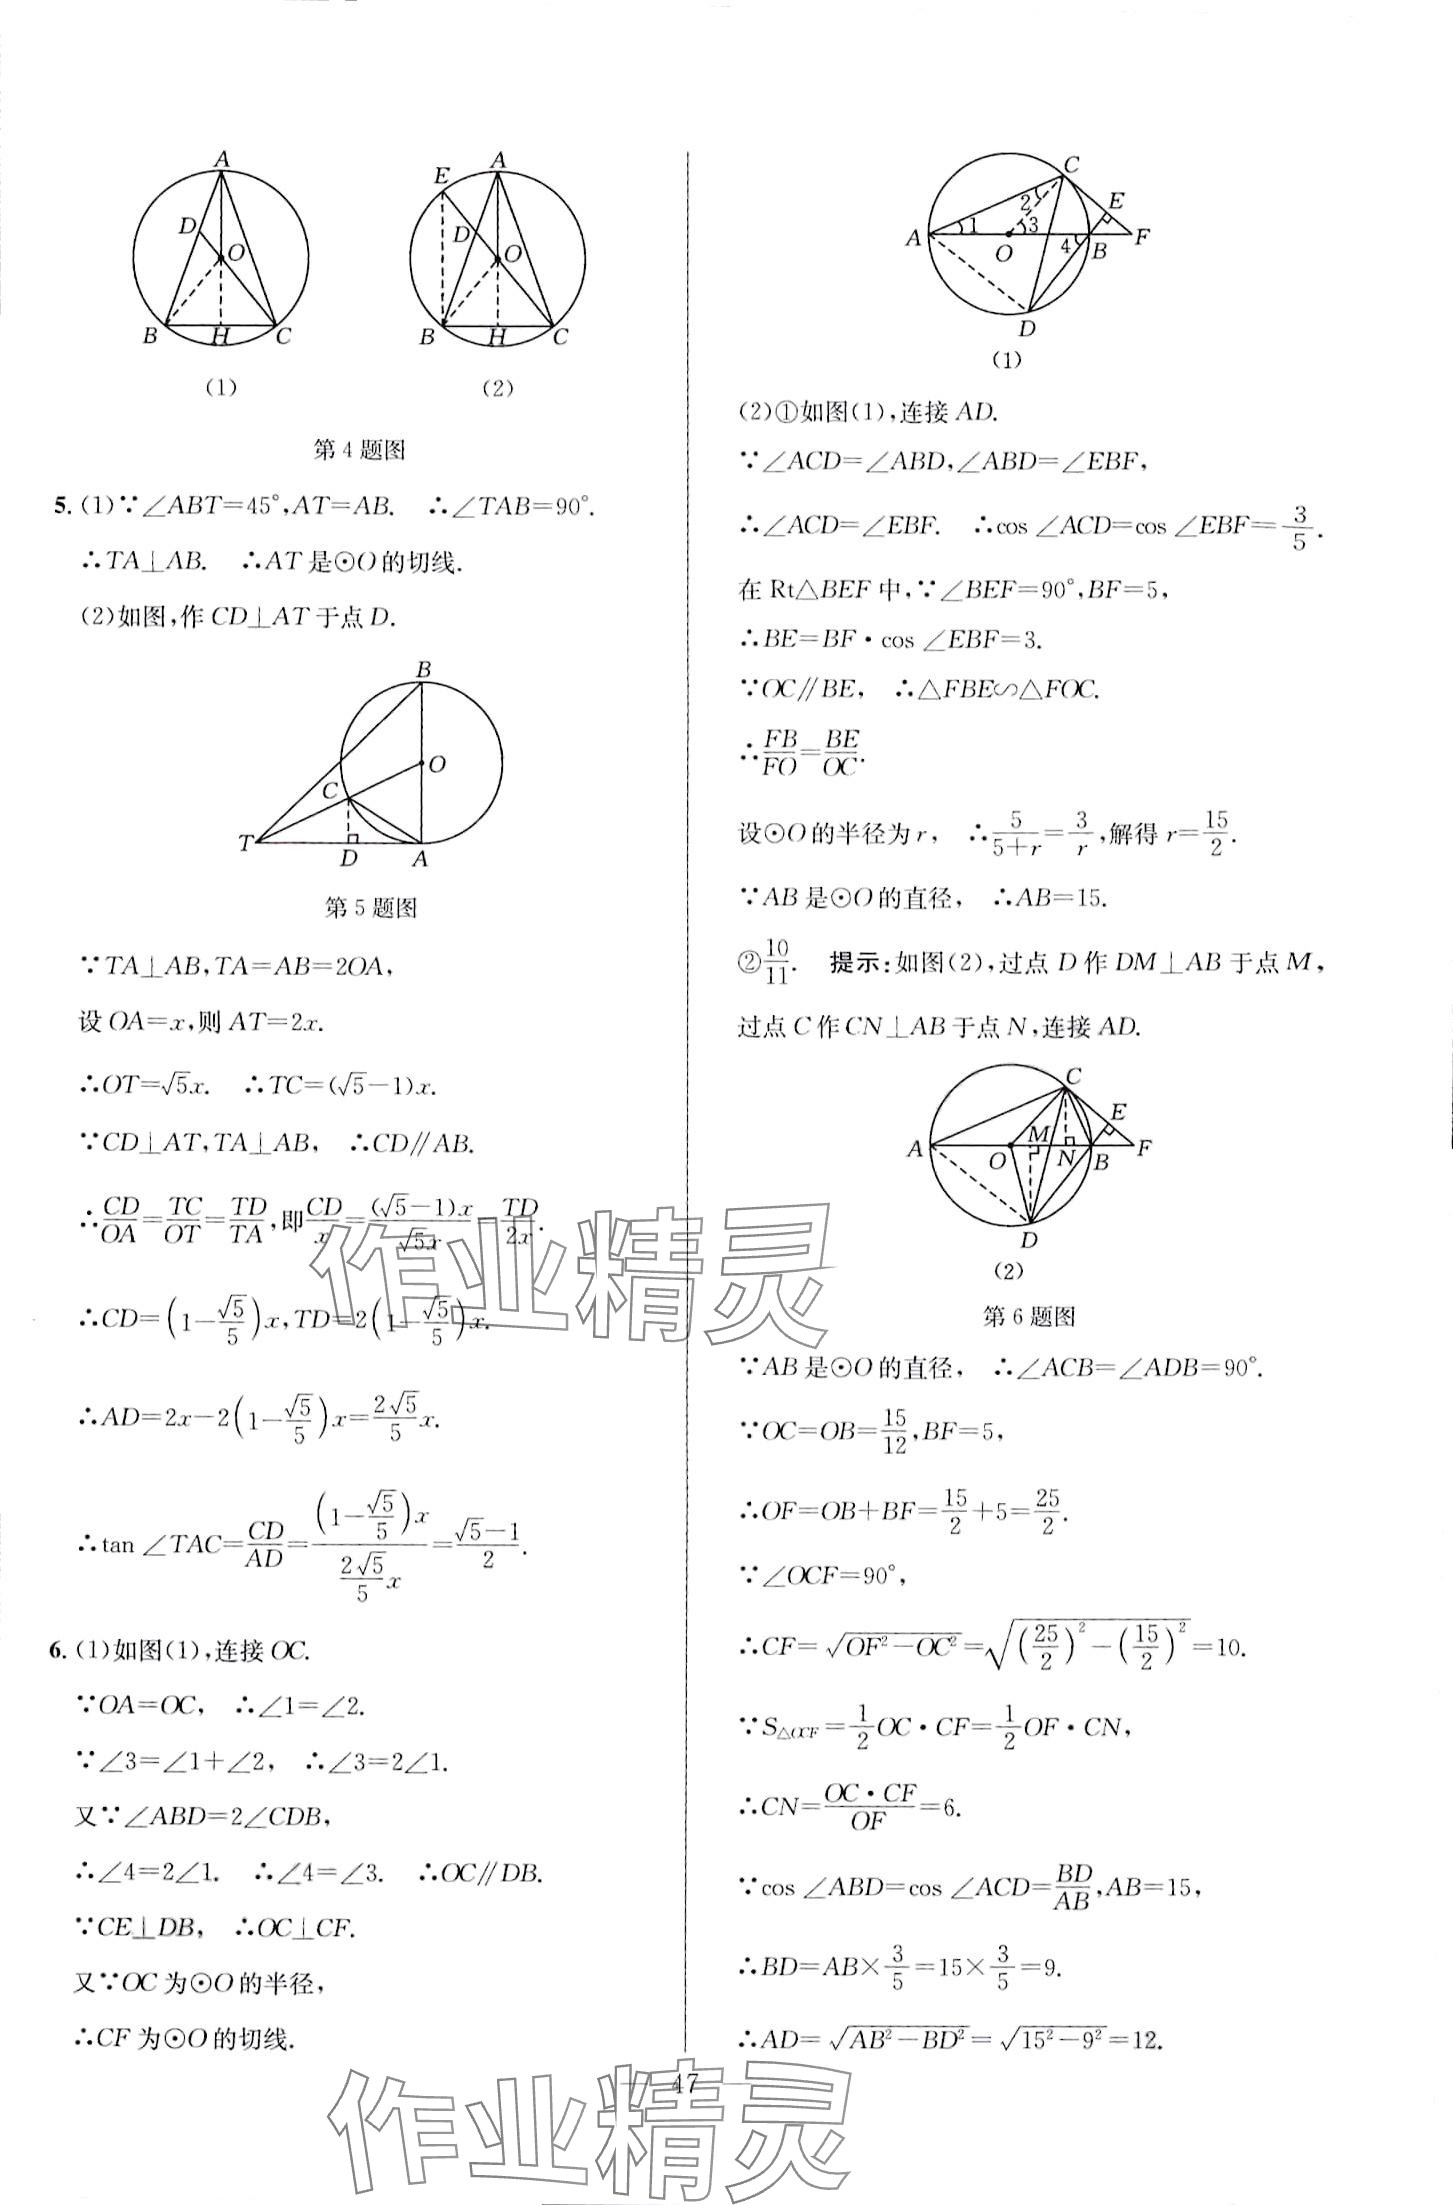 A A
E
D O D O
B H C B H C
(1) (2)
第4题图
5. (1)∵∠ABT=45°,AT=AB. ∴∠TAB=90°.
∴TA⊥AB. ∴AT是⊙O的切线.
(2)如图,作CD⊥AT于点D.
B
O
C
T D A
第5题图
∵TA⊥AB,TA=AB=2OA,
设OA=x,则AT=2x.
∴OT=√5x. ∴TC=(√5-1)x.
∵CD⊥AT,TA⊥AB, ∴CD∥AB.
∴CD/OA=TC/OT=TD/TA,即CD/x=(√5-1)x/√5x=TD/2x.
∴CD=(1-√5/5)x,TD=2(1-√5/5)x.
∴AD=2x-2(1-√5/5)x=2√5/5 x.
∴tan∠TAC=CD/AD=(1-√5/5)x/(2√5/5 x)=(√5-1)/2.
6. (1)如图(1),连接OC.
∵OA=OC, ∴∠1=∠2.
∵∠3=∠1+∠2, ∴∠3=2∠1.
又∵∠ABD=2∠CDB,
∴∠4=2∠1. ∴∠4=∠3. ∴OC∥DB.
∵CE⊥DB, ∴OC⊥CF.
又∵OC为⊙O的半径,
∴CF为⊙O的切线.
C
2 E
A 1 3 F
O 4 B
D
(1)
(2)①如图(1),连接AD.
∵∠ACD=∠ABD,∠ABD=∠EBF,
∴∠ACD=∠EBF. ∴cos∠ACD=cos∠EBF=3/5.
在Rt△BEF中,∵∠BEF=90°,BF=5,
∴BE=BF·cos∠EBF=3.
∵OC∥BE, ∴△FBE∽△FOC.
∴FB/FO=BE/OC.
设⊙O的半径为r, ∴5/(5+r)=3/r,解得r=15/2.
∵AB是⊙O的直径, ∴AB=15.
②10/11. 提示:如图(2),过点D作DM⊥AB于点M,
过点C作CN⊥AB于点N,连接AD.
C
E
A M F
O N B
D
(2)
第6题图
∵AB是⊙O的直径, ∴∠ACB=∠ADB=90°.
∵OC=OB=15/12,BF=5,
∴OF=OB+BF=15/2+5=25/2.
∵∠OCF=90°,
∴CF=√(OF²-OC²)=√((25/2)²-(15/2)²)=10.
∵S△OCF=1/2 OC·CF=1/2 OF·CN,
∴CN=OC·CF/OF=6.
∵cos∠ABD=cos∠ACD=BD/AB,AB=15,
∴BD=AB×3/5=15×3/5=9.
∴AD=√(AB²-BD²)=√(15²-9²)=12.
47
作业精灵
作业精灵